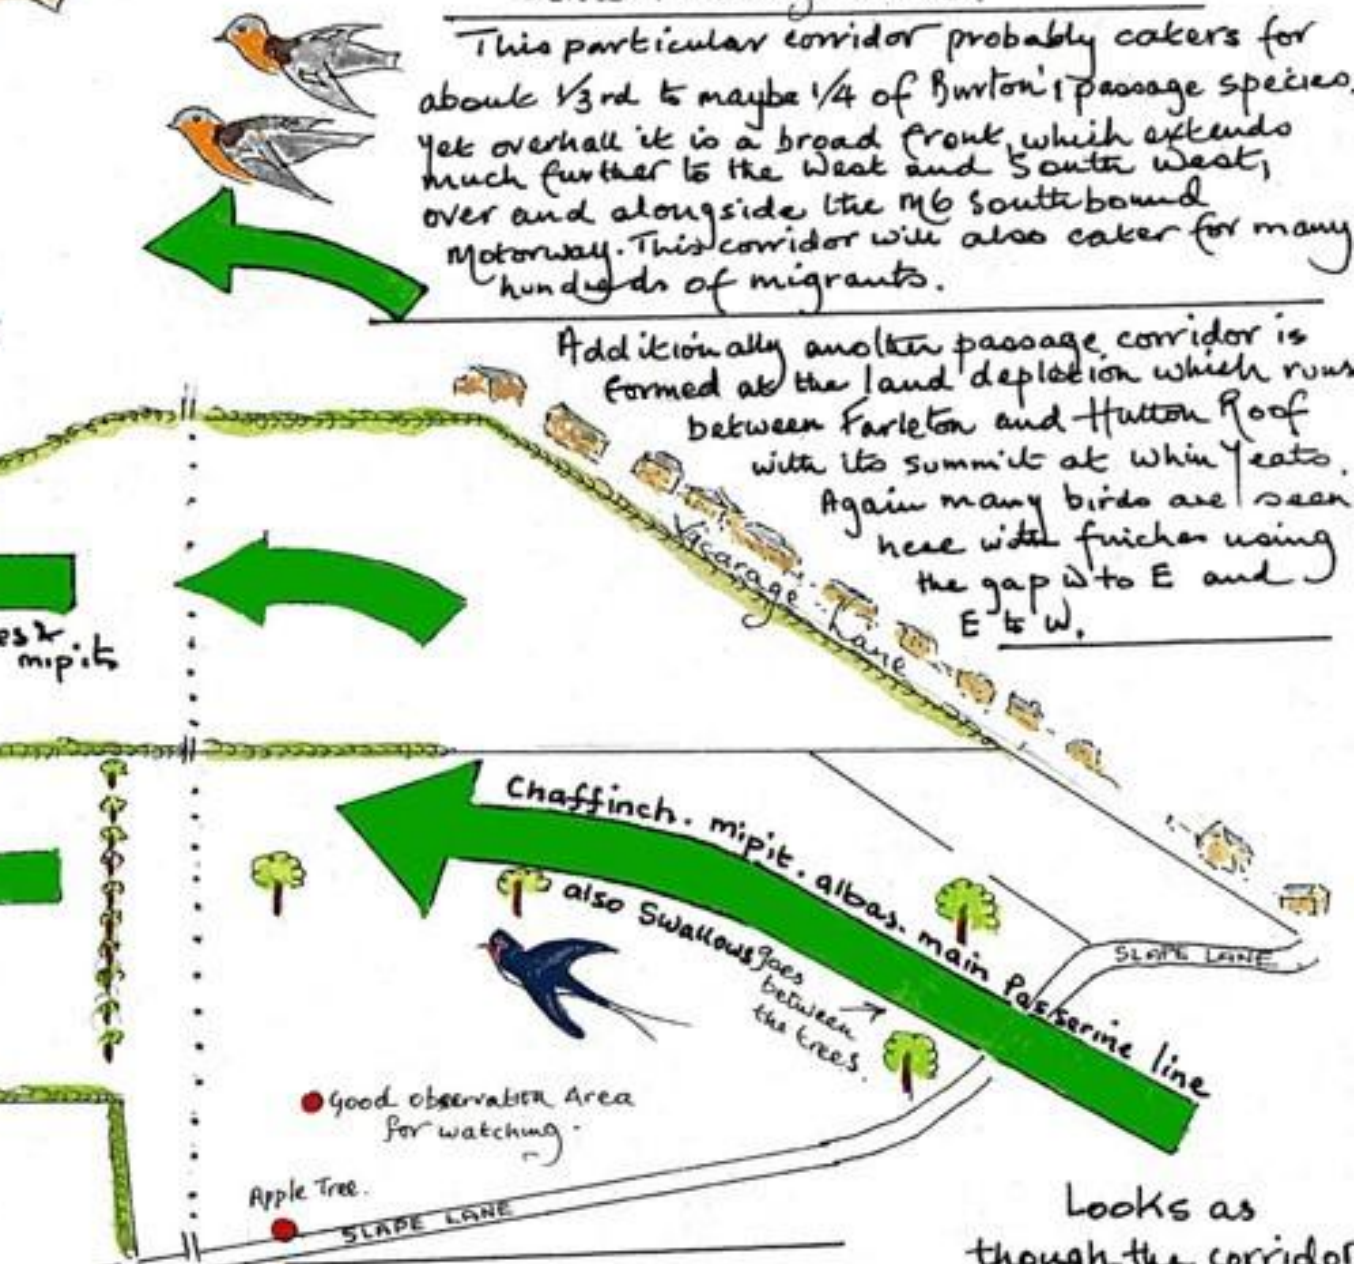 This particular corridor probably caters for
about 1/3rd to maybe 1/4 of Burton's passage species.
Yet overhall it is a broad front, which extends
much further to the West and South West,
over and alongside the M6 Southbound
Motorway. This corridor will also cater for many
hundreds of migrants.
Additionally another passage corridor is
formed at the land depletion which runs
between Farleton and Hutton Roof
with its summit at Whin Yeats.
Again many birds are seen
here with finches using
the gap W to E and
E to W.
Vicarage Lane
mipits
Chaffinch. mipit. albas. main Passerine line
also Swallows goes
between
the trees.
SLAPE LANE
Good observation Area
for watching.
Apple Tree.
SLAPE LANE
Looks as
though the corridor